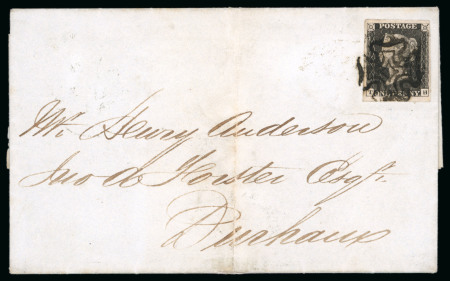 POSTAGE
ONE PENNY H
Mr. Henry Anderson
Jno. A. Forster Esqr.
Durham